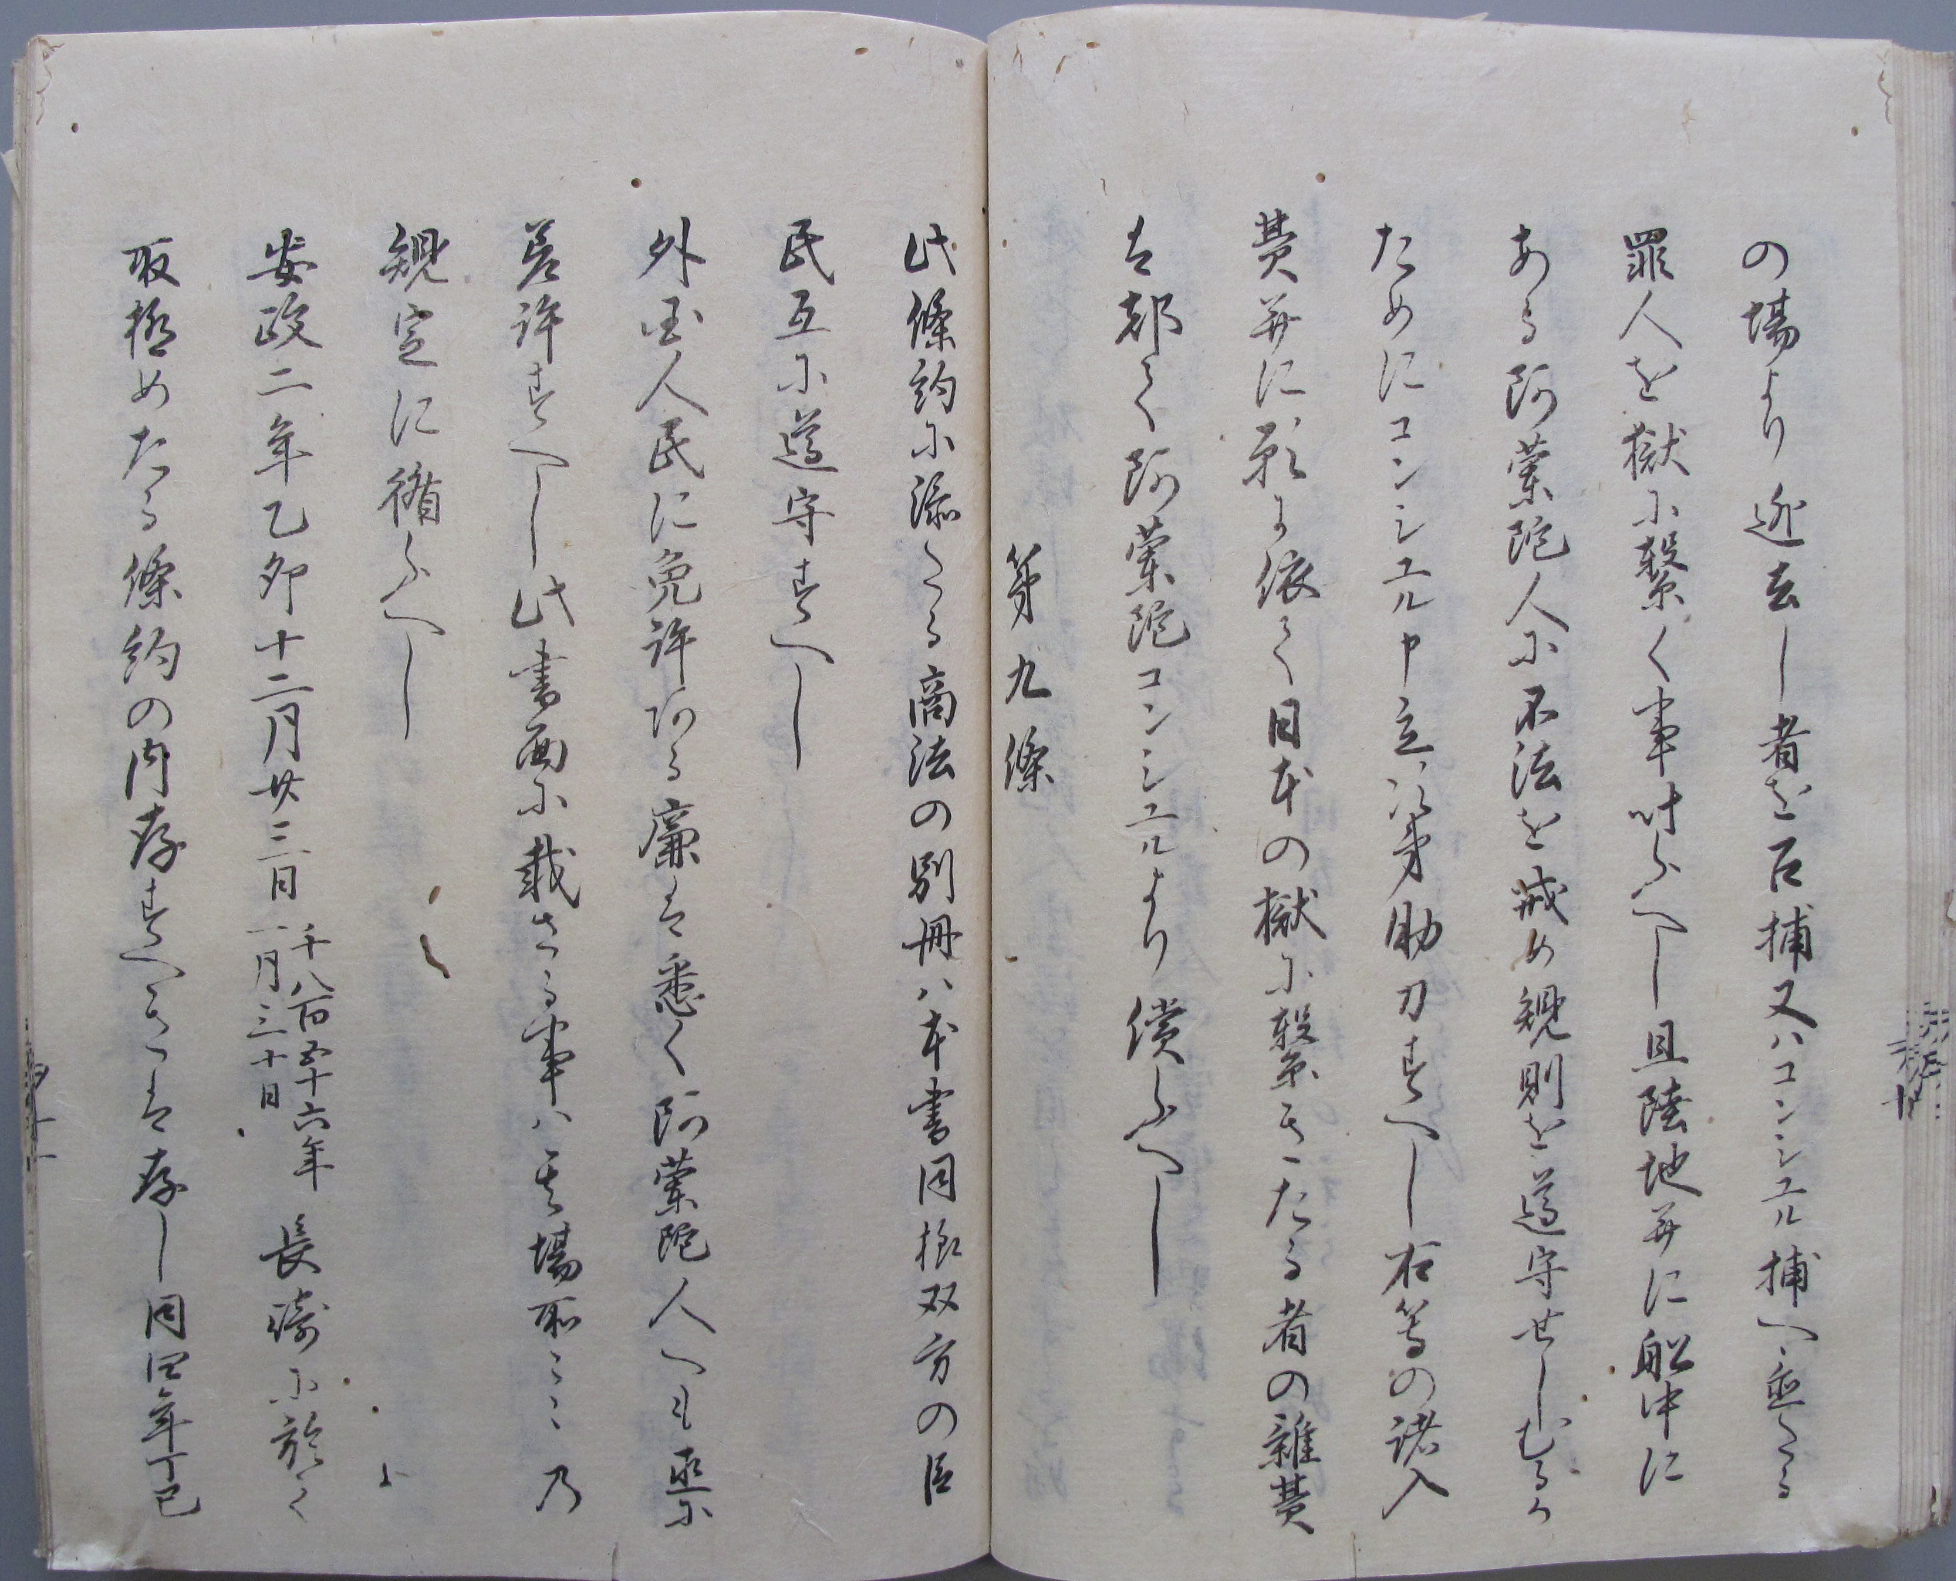 の場より迯去し者を召捕又ハコンシユル捕へ置たる
罪人を獄に繋く事叶ふへし且陸地并に船中に
ある阿蘭陀人に不法を戒め規則を遵守せしむるか
ためにコンシユル申立次第助力すへし右等の諸入
費并に願に依て日本の獄に繋きたる者の雑費
は都て阿蘭陀コンシユルより償ふへし
第九條
此條約に添たる商法の別冊ハ本書同様双方の臣
民互に遵守すへし
外国人民に免許ある廉は悉く阿蘭陀人へも亟に
差許すへし此書面に載さる事ハ其場所ミミ乃
規定に循ふへし
安政二年乙卯十二月廿三日 千八百五十六年一月三十日 長崎に於て
取極めたる條約の内存すへきは存し同四年丁巳